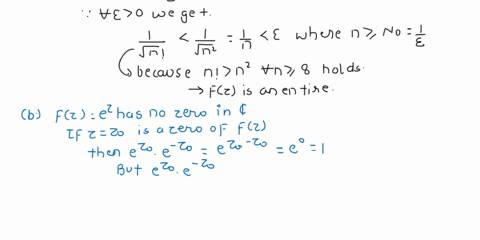 ∵ ∀ε>0 we get.
1/√n! < 1/√n² = 1/n < ε where n ≥ N₀ = 1/ε
because n! > n² ∀n ≥ 8 holds.
→ F(z) is an entire.
(b) F(z) = e^z has no zero in ₵
If z = z₀ is a zero of F(z)
then e^z₀ . e^-z₀ = e^z₀-z₀ = e⁰ = 1
But e^z₀ . e^-z₀